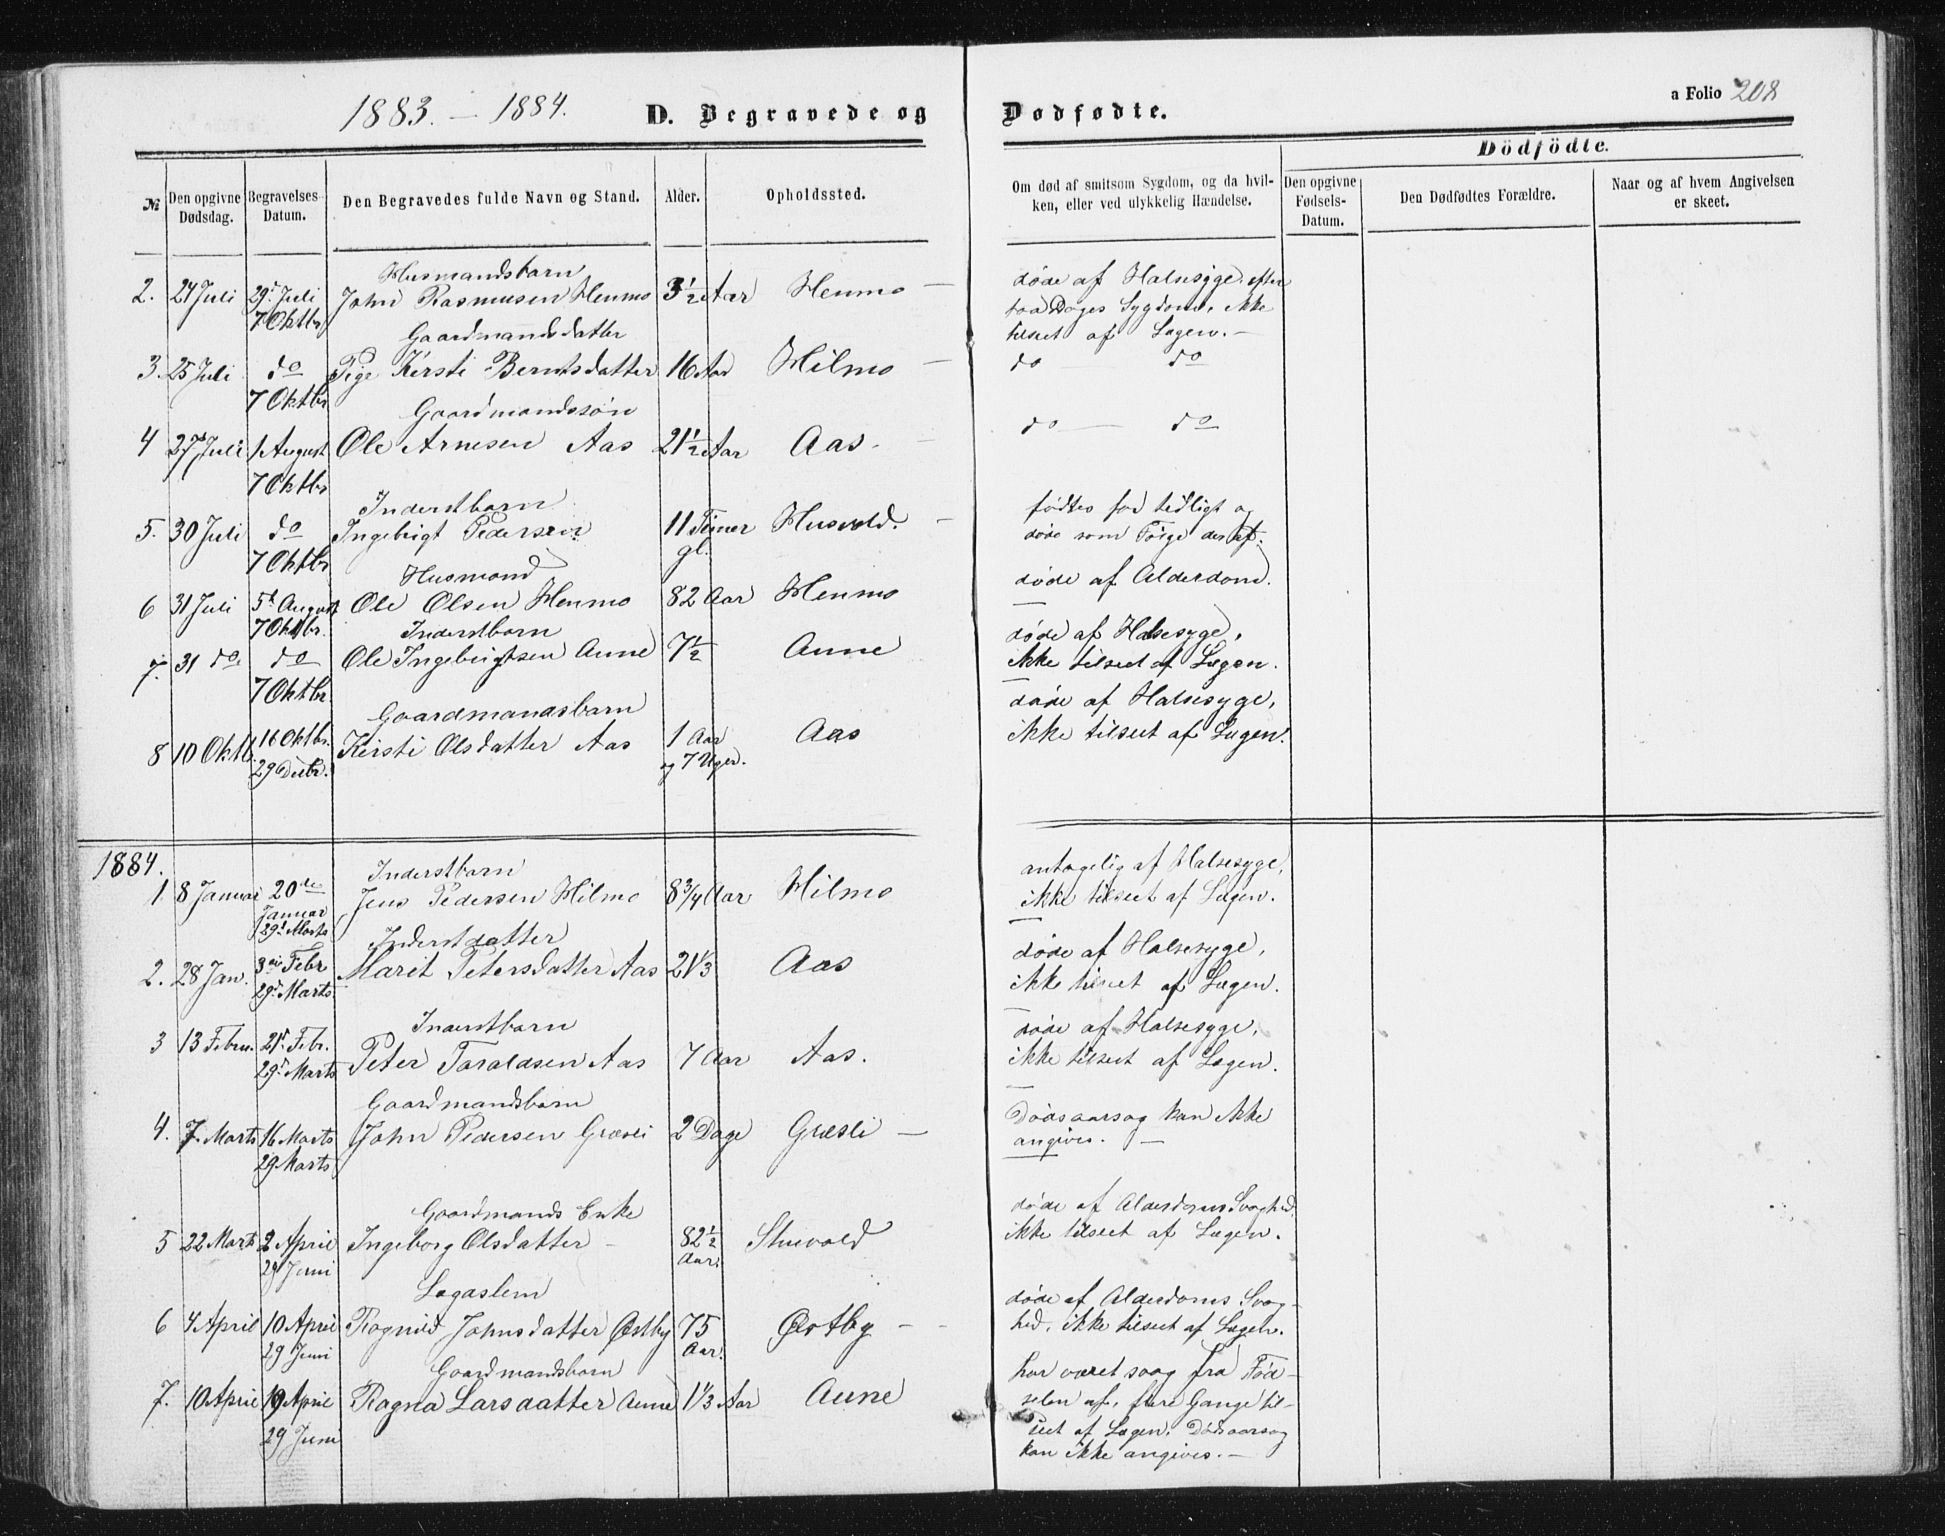 1883. – 1884. D. Begravede og Dødfødte. a Folio 208
Dödfödte.
№ Den opgivne Dødsdag. Begravelses-Datum. Den Begravedes fulde Navn og Stand. Alder. Opholdssted. Om død af smitsom Sygdom, og da hvilken, eller ved ulykkelig Hændelse. Den opgivne Fødsels-Datum. Den Dødfødtes Forældre. Naar og af hvem Angivelsen er skeet.
Husmandsbarn døde af Halsesyge efter
2. 24 Juli 29de Juli John Rasmusen Henmo 3½ Aar Henmo – faa Dages Sygdom, ikke
7 Oktbr tilseet af Lægen. –
Gaardmandsdatter
3. 25 Juli do Pige Kirsti Berntsdatter 16 Aar Hilmo – do do
7 Oktbr
Gaardmandssøn
4 27 Juli 1 August Ole Arnesen Aas 21½ Aar Aas. – do do
7 Oktbr
Inderstbarn fødtes for tidligt og
5. 30 Juli do Ingebrigt Pedersen 11 Timer gl. Husvold. – døde som Følge deraf.
7 Oktbr
Husmand
6 31 Juli 5te August Ole Olsen Henmo 82 Aar Henmo døde af Alderdom.
7 Oktbr.
Inderstbarn døde af Halsesyge,
7. 31 do do Ole Ingebrigtsen Aune 7½ Aune ikke tilseet af Lægen.
7 Oktbr.
Gaardmandsbarn døde af Halsesyge,
8 10 Oktb. 16 Oktbr. Kirsti Olsdatter Aas 1 Aar og 7 Uger. Aas ikke tilseet af Lægen.
29 Decbr.
1884.
Inderstbarn antagelig af Halsesyge,
1 8 Januar 20de Januar Jens Pedersen Hilmo 8¾ Aar Hilmo ikke tilseet af Lægen.
29de Marts
Inderstdatter døde af Halsesyge,
2. 28 Jan. 3die Febr Marit Petersdatter Aas 21⅓ Aas ikke tilseet af Lægen.
29de Marts
Inderstbarn døde af Halsesyge,
3 13 Febru. 21de Febr. Peter Taraldsen Aas 7 Aar Aas. ikke tilseet af Lægen.
29de Marts
Gaardmandsbarn Dødsaarsag kan ikke
4. 7. Marts 16 Marts John Pedersen Græsli 2 Dage Græsli – angives. –
29 Marts
Gaardmands Enke døde af Alderdoms Svaghed,
5 22 Marts 2 April Ingeborg Olsdatter – 82½ Aar. Stuevold ikke tilseet af Lægen.
29 Juni
Lægdslem døde af Alderdoms Svag-
6 4 April 10 April Ragnild Johnsdatter Østby 75 Aar. Østby – – hed, ikke tilseet af Lægen.
29 Juni
Gaardmandsbarn har været svag fra Fød-
7. 10 April 19 April Ragna Larsdatter Aune 1⅓ Aar Aune selen af, flere Gange til-
29 Juni seet af Lægen. Dødsaarsag
kan ikke angives. –